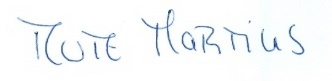 MUTE MARTINS